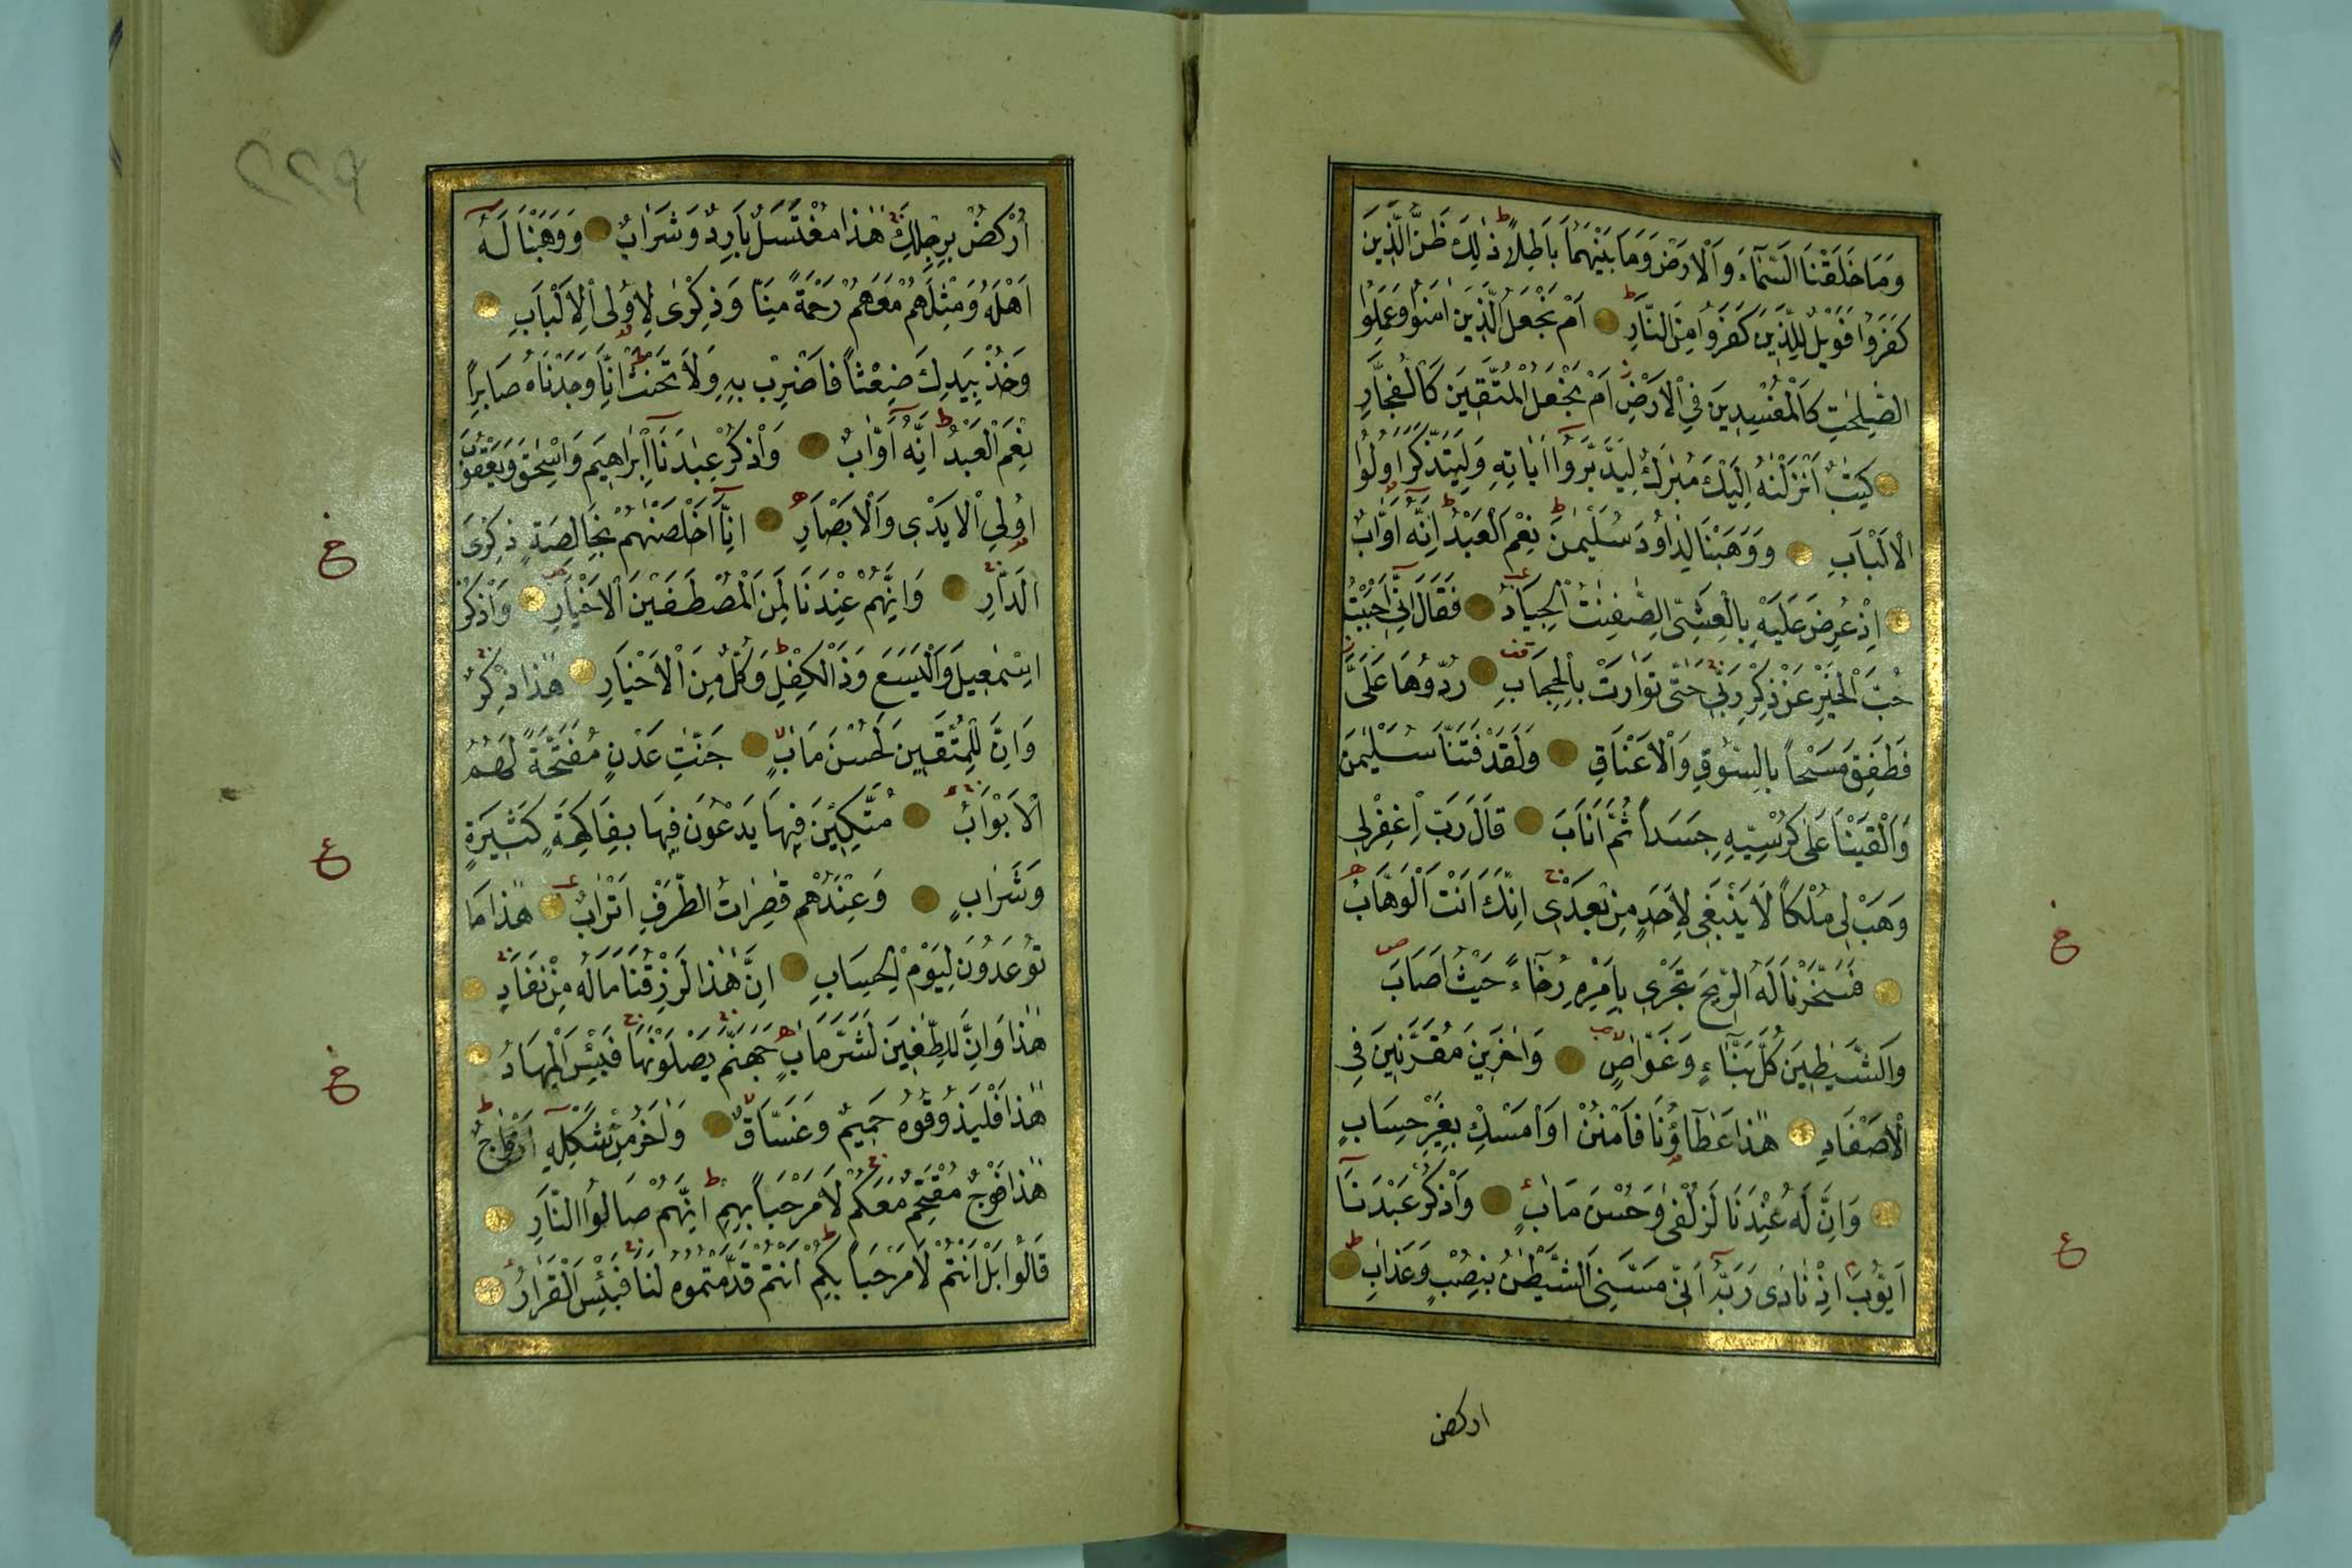 وَمَا خَلَقْنَا السَّمَآءَ وَالْاَرْضَ وَمَا بَيْنَهُمَا بَاطِلًا ذٰلِكَ ظَنُّ الَّذِينَ
كَفَرُوا فَوَيْلٌ لِلَّذِينَ كَفَرُوا مِنَ النَّارِ اَمْ نَجْعَلُ الَّذِينَ اٰمَنُوا وَعَمِلُوا
الصّٰلِحٰتِ كَالْمُفْسِدِينَ فِي الْاَرْضِ اَمْ نَجْعَلُ الْمُتَّقِينَ كَالْفُجَّارِ
كِتٰبٌ اَنْزَلْنٰهُ اِلَيْكَ مُبٰرَكٌ لِيَدَّبَّرُوٓا اٰيَاتِهِ وَلِيَتَذَكَّرَ اُولُوا
الْاَلْبَابِ وَوَهَبْنَا لِدَاوُدَ سُلَيْمٰنَ نِعْمَ الْعَبْدُ اِنَّهُ اَوَّابٌ
اِذْ عُرِضَ عَلَيْهِ بِالْعَشِيِّ الصّٰفِنٰتُ الْجِيَادُ فَقَالَ اِنِّي اَحْبَبْتُ
حُبَّ الْخَيْرِ عَنْ ذِكْرِ رَبِّي حَتّٰى تَوَارَتْ بِالْحِجَابِ رُدُّوهَا عَلَيَّ
فَطَفِقَ مَسْحًا بِالسُّوقِ وَالْاَعْنَاقِ وَلَقَدْ فَتَنَّا سُلَيْمٰنَ
وَاَلْقَيْنَا عَلٰى كُرْسِيِّهِ جَسَدًا ثُمَّ اَنَابَ قَالَ رَبِّ اغْفِرْ لِي
وَهَبْ لِي مُلْكًا لَا يَنْبَغِي لِاَحَدٍ مِنْ بَعْدِي اِنَّكَ اَنْتَ الْوَهَّابُ
فَسَخَّرْنَا لَهُ الرِّيحَ تَجْرِي بِاَمْرِهِ رُخَآءً حَيْثُ اَصَابَ
وَالشَّيٰطِينَ كُلَّ بَنَّآءٍ وَغَوَّاصٍ وَاٰخَرِينَ مُقَرَّنِينَ فِي
الْاَصْفَادِ هٰذَا عَطَآؤُنَا فَامْنُنْ اَوْ اَمْسِكْ بِغَيْرِ حِسَابٍ
وَاِنَّ لَهُ عِنْدَنَا لَزُلْفٰى وَحُسْنَ مَاٰبٍ وَاذْكُرْ عَبْدَنَآ
اَيُّوبَ اِذْ نَادٰى رَبَّهُ اَنِّي مَسَّنِيَ الشَّيْطٰنُ بِنُصْبٍ وَعَذَابٍ
اركض
اُرْكُضْ بِرِجْلِكَ هٰذَا مُغْتَسَلٌ بَارِدٌ وَشَرَابٌ وَوَهَبْنَا لَهُٓ
اَهْلَهُ وَمِثْلَهُمْ مَعَهُمْ رَحْمَةً مِنَّا وَذِكْرٰى لِاُولِي الْاَلْبَابِ
وَخُذْ بِيَدِكَ ضِغْثًا فَاضْرِبْ بِهِ وَلَا تَحْنَثْ اِنَّا وَجَدْنَاهُ صَابِرًا
نِعْمَ الْعَبْدُ اِنَّهُٓ اَوَّابٌ وَاذْكُرْ عِبٰدَنَآ اِبْرَاهِيمَ وَاِسْحٰقَ وَيَعْقُوبَ
اُولِي الْاَيْدِي وَالْاَبْصَارِ اِنَّآ اَخْلَصْنٰهُمْ بِخَالِصَةٍ ذِكْرَى
الدَّارِ وَاِنَّهُمْ عِنْدَنَا لَمِنَ الْمُصْطَفَيْنَ الْاَخْيَارِ وَاذْكُرْ
اِسْمٰعِيلَ وَالْيَسَعَ وَذَا الْكِفْلِ وَكُلٌّ مِنَ الْاَخْيَارِ هٰذَا ذِكْرٌ
وَاِنَّ لِلْمُتَّقِينَ لَحُسْنَ مَاٰبٍ جَنّٰتِ عَدْنٍ مُفَتَّحَةً لَهُمُ
الْاَبْوَابُ مُتَّكِئِينَ فِيهَا يَدْعُونَ فِيهَا بِفَاكِهَةٍ كَثِيرَةٍ
وَشَرَابٍ وَعِنْدَهُمْ قٰصِرَاتُ الطَّرْفِ اَتْرَابٌ هٰذَا مَا
تُوعَدُونَ لِيَوْمِ الْحِسَابِ اِنَّ هٰذَا لَرِزْقُنَا مَا لَهُ مِنْ نَفَادٍ
هٰذَا وَاِنَّ لِلطّٰغِينَ لَشَرَّ مَاٰبٍ جَهَنَّمَ يَصْلَوْنَهَا فَبِئْسَ الْمِهَادُ
هٰذَا فَلْيَذُوقُوهُ حَمِيمٌ وَغَسَّاقٌ وَاٰخَرُ مِنْ شَكْلِهِٓ اَزْوَاجٌ
هٰذَا فَوْجٌ مُقْتَحِمٌ مَعَكُمْ لَا مَرْحَبًا بِهِمْ اِنَّهُمْ صَالُوا النَّارِ
قَالُوا بَلْ اَنْتُمْ لَا مَرْحَبًا بِكُمْ اَنْتُمْ قَدَّمْتُمُوهُ لَنَا فَبِئْسَ الْقَرَارُ